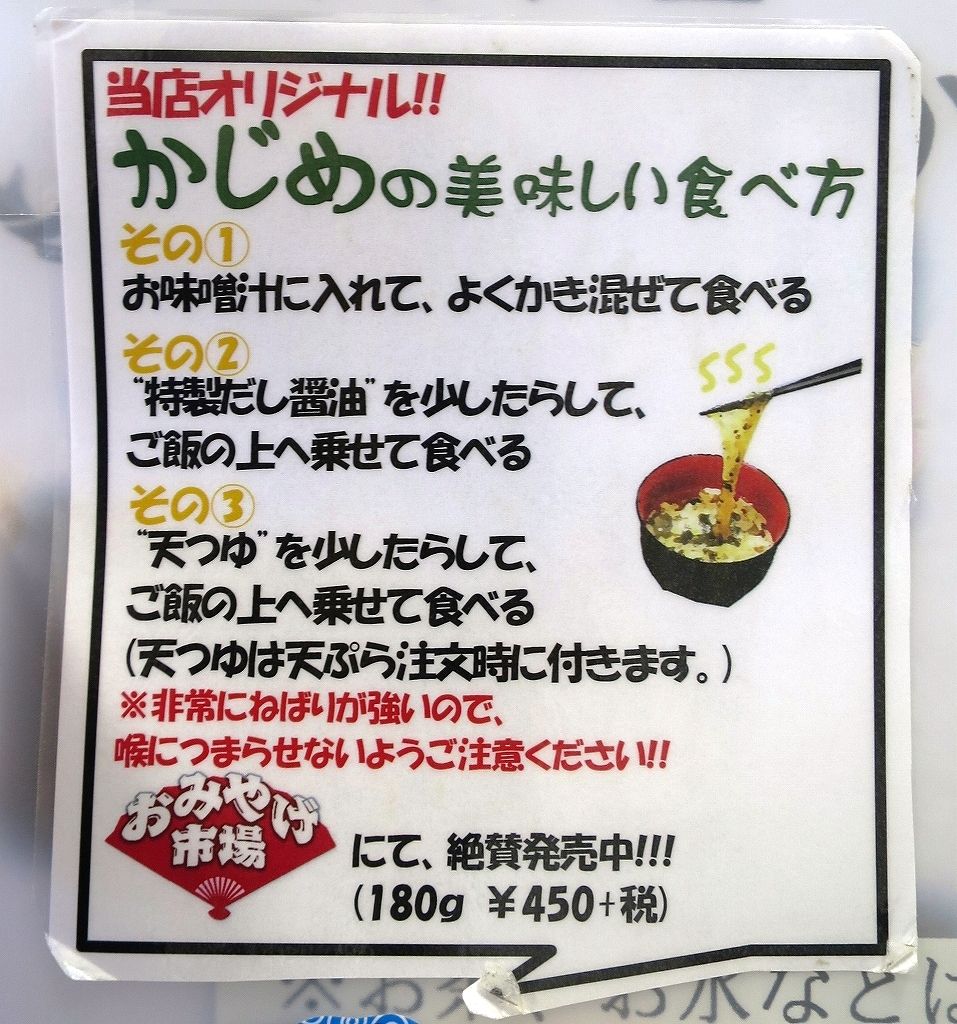 当店オリジナル!!
かじめの美味しい食べ方
その①
お味噌汁に入れて、よくかき混ぜて食べる
その②
"特製だし醤油"を少したらして、
ご飯の上へ乗せて食べる
その③
"天つゆ"を少したらして、
ご飯の上へ乗せて食べる
(天つゆは天ぷら注文時に付きます。)
※非常にねばりが強いので、
喉につまらせないようご注意ください!!
おみやげ
市場
にて、絶賛発売中!!!
(180g ¥450+税)
お水などは